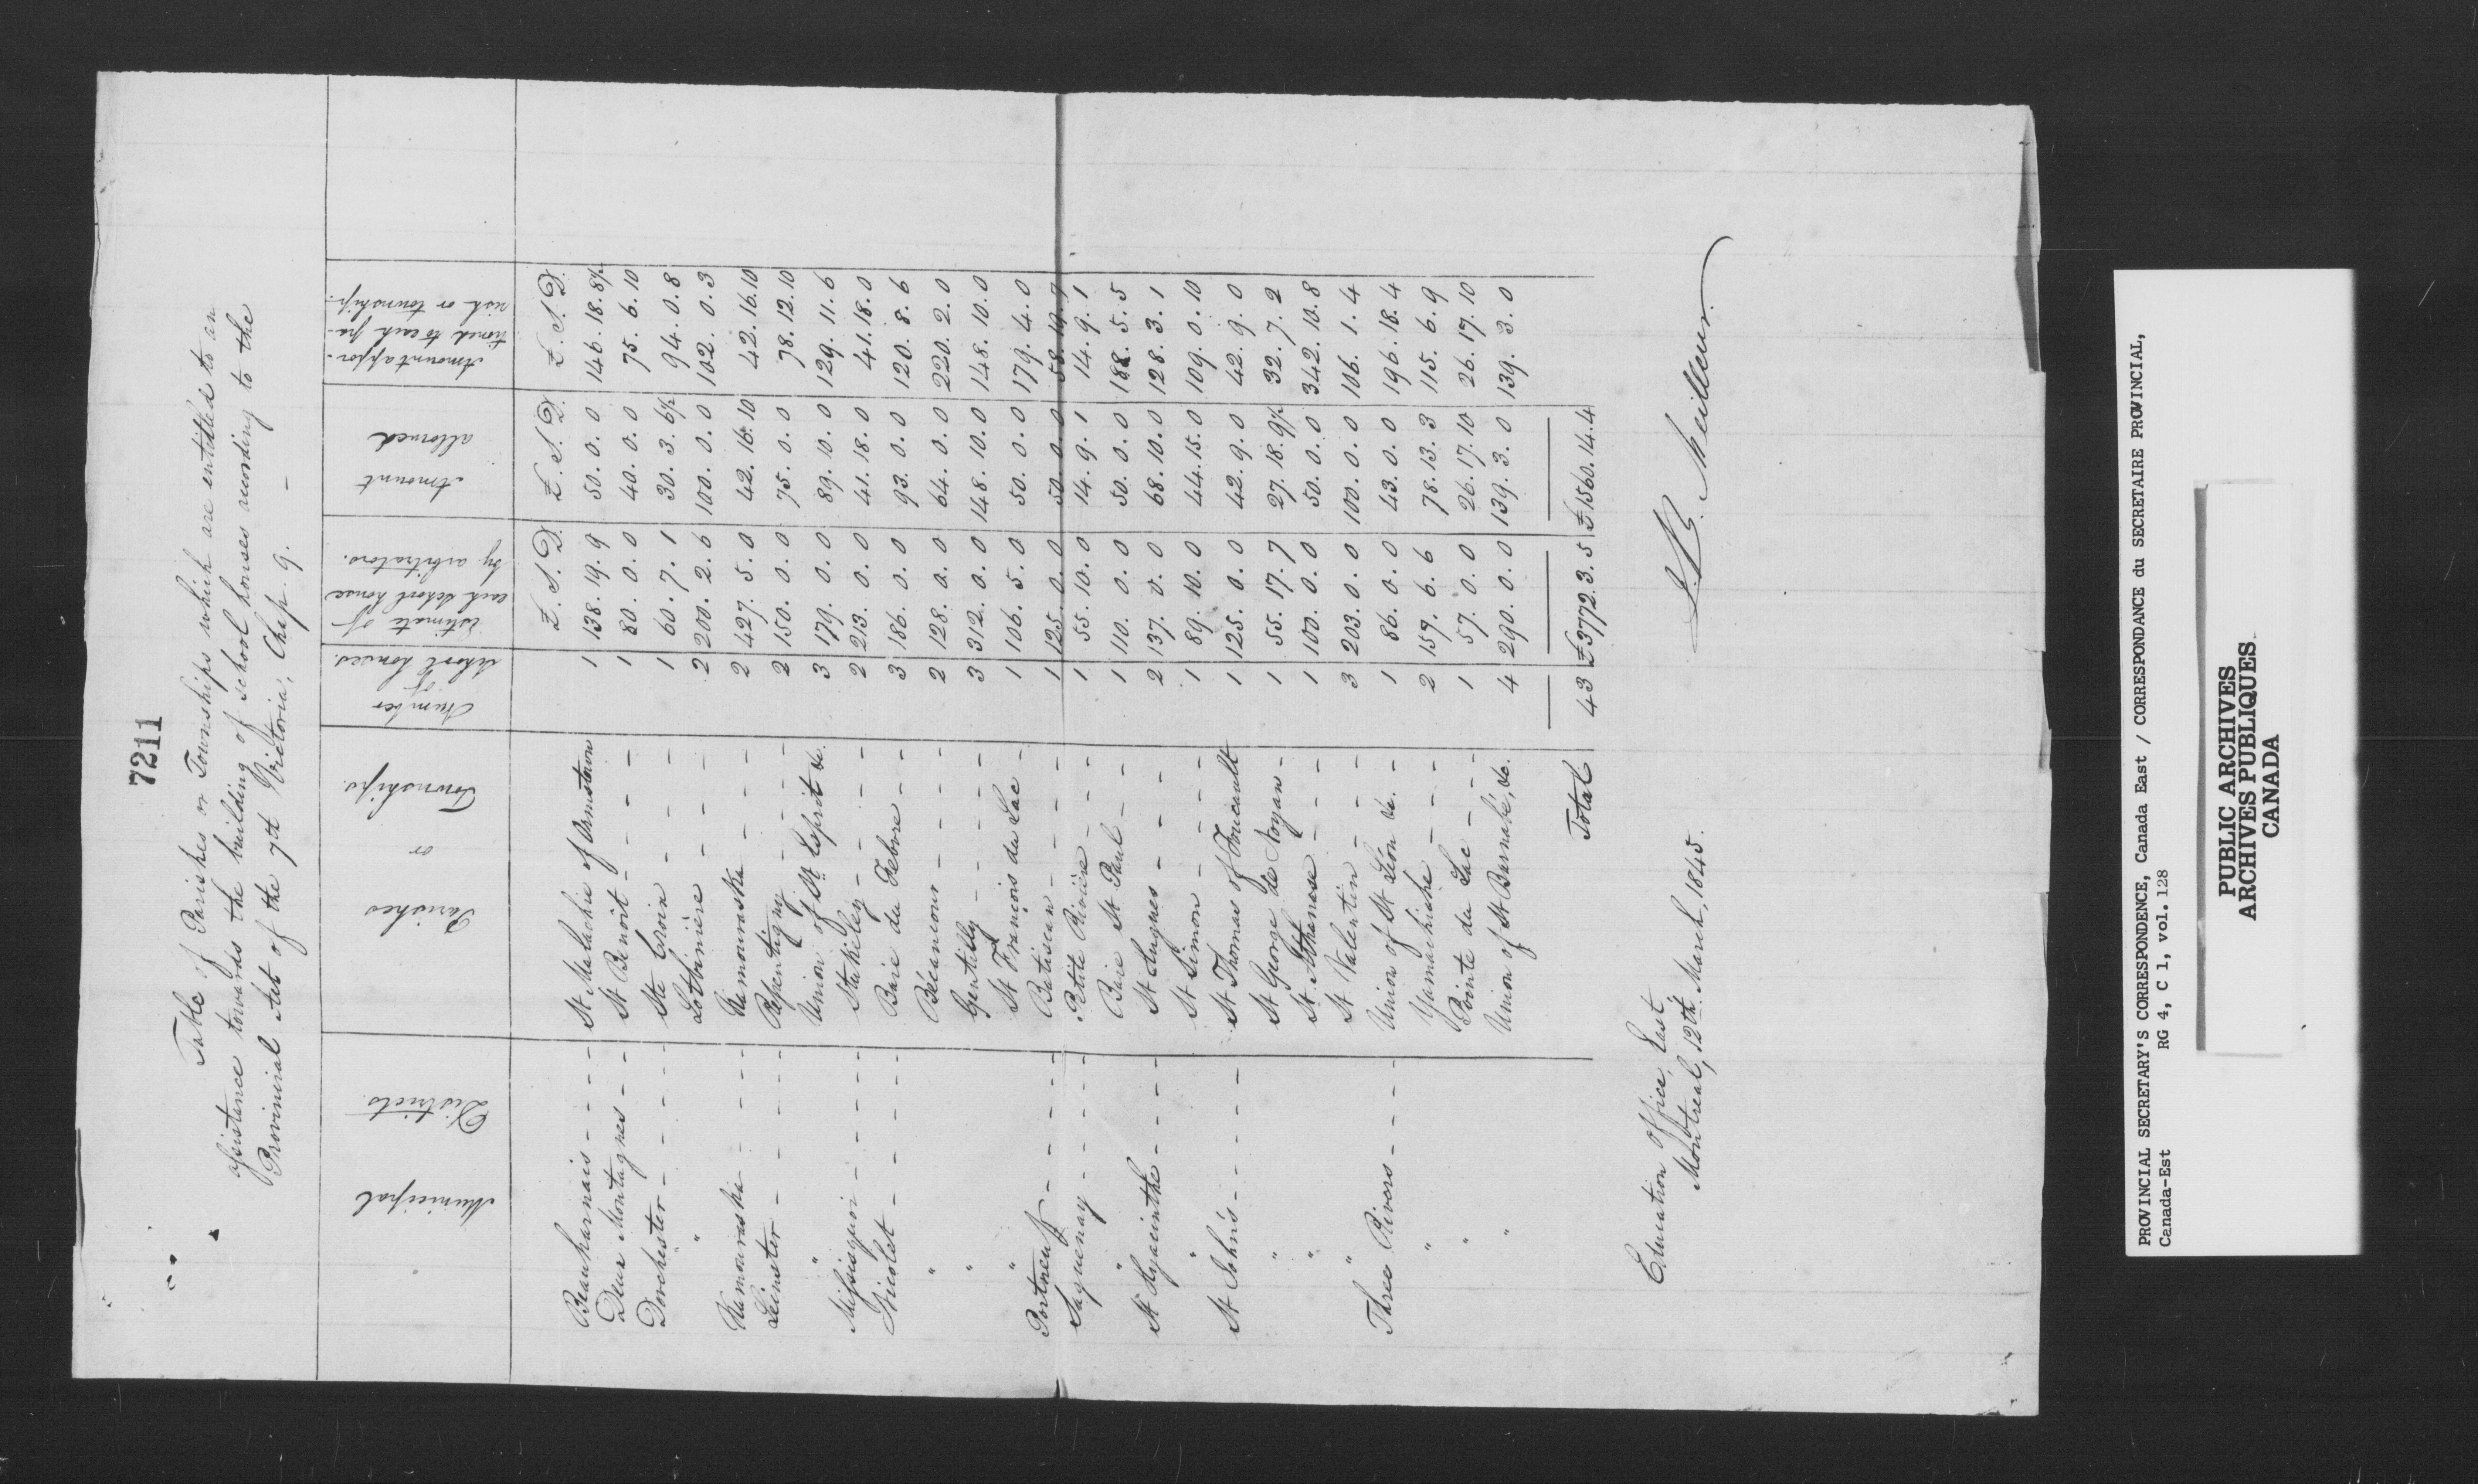 7211
Table of Parishes or Townships which are entitled to an
assistance towards the building of school houses according to the
Provincial Act of the 7th Victoria, Chap. 9. —
Municipal Districts | Parishes or Townships. | Number of School houses. | Estimate of each School house by arbitrators. | Amount allowed | Amount appor-tioned to each pa-rish or township.
£. S. D. | £. S. D. | £. S. D.
Beauharnais - - - - | St Malachie of Ormstown | 1 | 138. 19. 9 | 50. 0. 0 | 146. 18. 8½
Deux Montagnes - - | St Benoit - - - - | 1 | 80. 0. 0 | 40. 0. 0 | 75. 6. 10
Dorchester - - - - | Ste Croix - - - - | 1 | 60. 7. 1 | 30. 3. 6½ | 94. 0. 8
" | Lotbinière - - - - | 2 | 200. 2. 6 | 100. 0. 0 | 102. 0. 3
Kamouraska - - - - | Kamouraska - - - - | 2 | 427. 5. 0 | 42. 16. 10 | 42. 16. 10
Leinster - - - - | Repentigny - - - - | 2 | 150. 0. 0 | 75. 0. 0 | 78. 12. 10
" | Union of St. Esprit &c. | 3 | 179. 0. 0 | 89. 10. 0 | 129. 11. 6
Missisquoi - - - - | Stukeley - - - - | 2 | 213. 0. 0 | 41. 18. 0 | 41. 18. 0
Nicolet - - - - | Baie du Febvre - - | 3 | 186. 0. 0 | 93. 0. 0 | 120. 8. 6
" | Bécancour - - - - | 2 | 128. 0. 0 | 64. 0. 0 | 220. 2. 0
" | Gentilly - - - - | 3 | 312. 0. 0 | 148. 10. 0 | 148. 10. 0
" | St François du Lac - | 1 | 106. 5. 0 | 50. 0. 0 | 179. 4. 0
Portneuf - - - - | Batiscan - - - - | 1 | 125. 0. 0 | 50. 0. 0 | 58. 19. 7
Saguenay - - - - | Petite Rivière - - - | 1 | 55. 10. 0 | 14. 9. 1 | 14. 9. 1
" | Baie St Paul - - | 1 | 110. 0. 0 | 50. 0. 0 | 188. 5. 5
St Hyacinthe - - - - | St Hugues - - - - | 2 | 137. 0. 0 | 68. 10. 0 | 128. 3. 1
" | St Simon - - - - | 1 | 89. 10. 0 | 44. 15. 0 | 109. 0. 10
St John's - - - - | St Thomas of Foucault | 1 | 125. 0. 0 | 42. 9. 0 | 42. 9. 0
" | St George de Noyan - | 1 | 55. 17. 7 | 27. 18. 9½ | 32. 7. 2
" | St Athanase - - - | 1 | 100. 0. 0 | 50. 0. 0 | 342. 10. 8
" | St Valentin - - - - | 3 | 203. 0. 0 | 100. 0. 0 | 106. 1. 4
Three Rivers - - - - | Union of St Léon &c. - | 1 | 86. 0. 0 | 43. 0. 0 | 196. 18. 4
" | Yamachiche - - - | 2 | 157. 6. 6 | 78. 13. 3 | 115. 6. 9
" | Pointe du Lac - - - | 1 | 57. 0. 0 | 26. 17. 10 | 26. 17. 10
" | Union of St Barnabé, &c. | 4 | 290. 0. 0 | 139. 3. 0 | 139. 3. 0
Total | 43 | £3772. 3. 5 | £1560. 14. 4
Education Office, East
Montreal, 12th March, 1845.
J. B. Meilleur.
PROVINCIAL SECRETARY'S CORRESPONDENCE, Canada East / CORRESPONDANCE du SECRETAIRE PROVINCIAL,
Canada-Est RG 4, C 1, vol. 128
PUBLIC ARCHIVES
ARCHIVES PUBLIQUES
CANADA